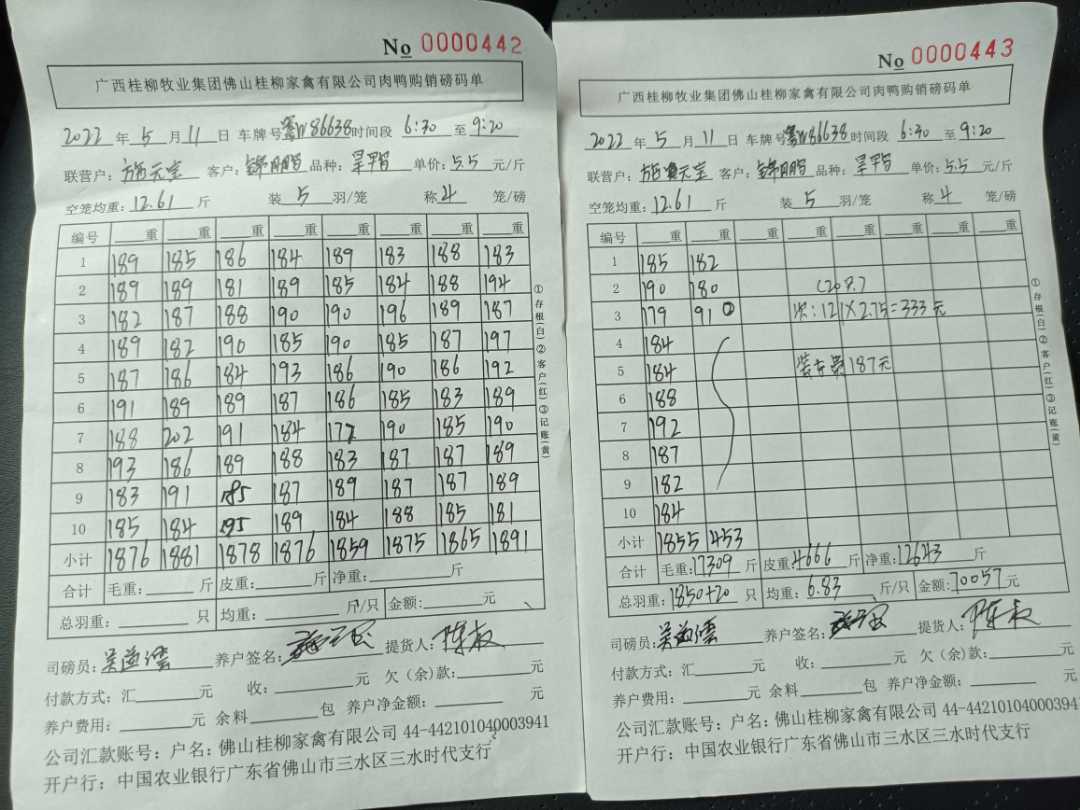 No 0000442
广西桂柳牧业集团佛山桂柳家禽有限公司肉鸭购销磅码单
2022 年 5 月 11 日 车牌号 W86638 时间段 6:30 至 9:20
联营户: 元 客户: 鹏 品种: 单价: 5.5 元/斤
空笼均重: 12.61 斤 装 5 羽/笼 称 4 笼/磅
编号 重 重 重 重 重 重 重 重
1 189 185 186 184 189 183 188 183
2 189 189 181 189 185 184 188 194
3 182 187 188 190 190 196 189 187
4 189 182 190 185 190 185 187 197
5 187 186 184 193 186 190 186 192
6 191 189 189 187 186 185 183 189
7 188 202 191 184 177 190 185 190
8 193 186 189 188 183 187 187 189
9 183 191 185 187 189 187 187 189
10 185 184 195 189 184 188 185 181
小计 1876 1881 1878 1876 1859 1875 1865 1891
合计 毛重: 斤 皮重: 斤 净重: 斤
总羽重: 只 均重: 斤/只 金额: 元
司磅员: 养户签名: 提货人: 陈
付款方式: 汇 元 收: 元 欠(余)款: 元
养户费用: 元 余料 包 养户净金额: 元
公司汇款账号: 户名: 佛山桂柳家禽有限公司 44-442101040003941
开户行: 中国农业银行广东省佛山市三水区三水时代支行
①存根(白)②客户(红)③记账(黄)
No 0000443
广西桂柳牧业集团佛山桂柳家禽有限公司肉鸭购销磅码单
2022 年 5 月 11 日 车牌号 W86638 时间段 6:30 至 9:20
联营户: 元 客户: 鹏 品种: 单价: 5.5 元/斤
空笼均重: 12.61 斤 装 5 羽/笼 称 4 笼/磅
编号 重 重 重 重 重 重 重 重
1 185 182
2 190 180 (20只)
3 179 91② 次: 121×2.75=333元
4 184
5 184 装车费187元
6 188
7 192
8 187
9 182
10 184
小计 1855 453
合计 毛重: 17309 斤 皮重: 4666 斤 净重: 12643 斤
总羽重: 1850+20 只 均重: 6.83 斤/只 金额: 70057 元
司磅员: 养户签名: 提货人: 陈
付款方式: 汇 元 收: 元 欠(余)款: 元
养户费用: 元 余料 包 养户净金额: 元
公司汇款账号: 户名: 佛山桂柳家禽有限公司 44-44210104000394
开户行: 中国农业银行广东省佛山市三水区三水时代支行
①存根(白)②客户(红)③记账(黄)